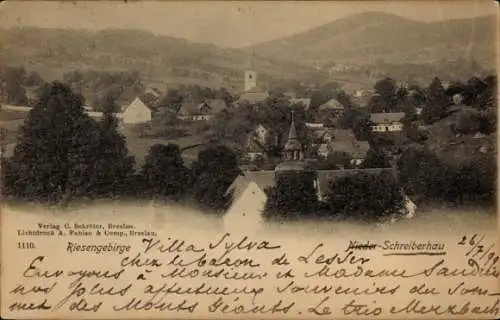 Verlag C. Schröter, Breslau.
Lichtdruck A. Pablas & Comp., Breslau.
1110. Riesengebirge Villa Sylva Nieder-Schreiberhau 26/7/99
chez le baron de Lesser
Envoyons à Monsieur et Madame
nos plus affectueux Souvenirs du som-
met des Monts Géants. Le trio Merzbach